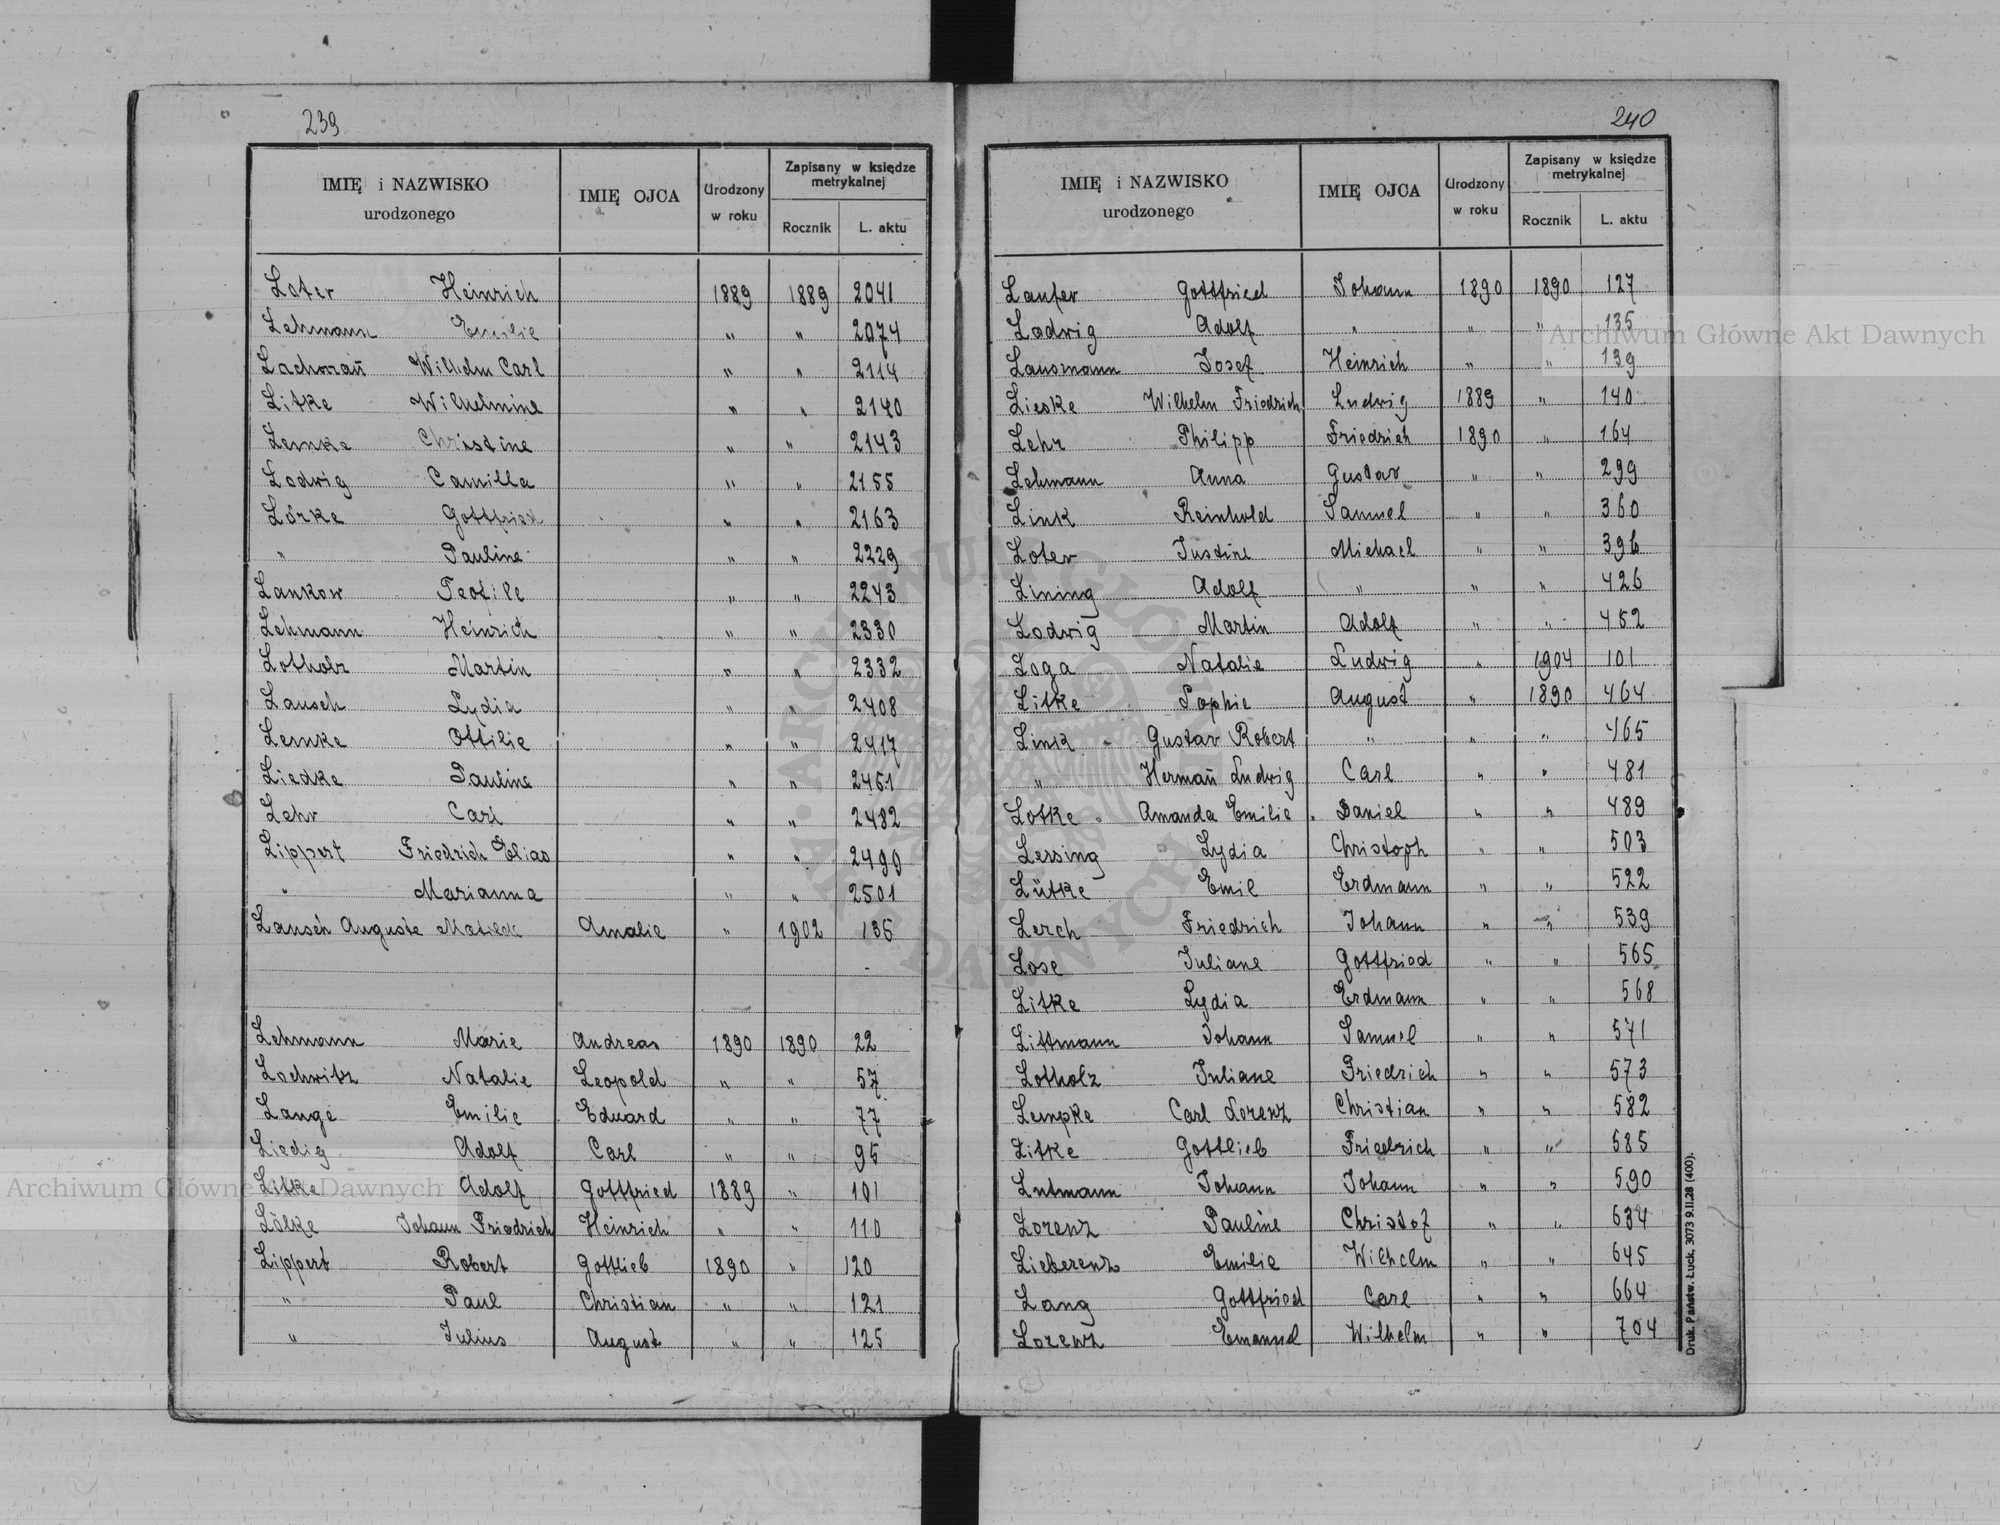 239
IMIĘ i NAZWISKO urodzonego IMIĘ OJCA Urodzony w roku Zapisany w księdze metrykalnej Rocznik L. aktu
Loter Heinrich 1889 1889 2041
Lehmann Emilie " " 2074
Lachmañ Wilhelm Carl " " 2114
Litke Wilhelmine " " 2140
Lemke Christine " " 2143
Ludwig Camilla " " 2155
Lörke Gottfried " " 2163
" Pauline " " 2229
Lankow Teofile " " 2243
Lehmann Heinrich " " 2330
Lotholz Martin " " 2332
Lausch Lydia " " 2408
Lemke Ottilie " " 2417
Liedke Pauline " " 2461
Lehr Carl " " 2482
Lippert Friedrich Elias " " 2490
" Marianna " " 2501
Lausch Auguste Matilde Amalie " 1902 136
Lehmann Marie Andreas 1890 1890 22
Lochwitz Natalie Leopold " " 57
Lange Emilie Eduard " " 77
Liedig Adolf Carl " " 95
Litke Adolf Gottfried 1889 " 101
Lölke Johann Friedrich Heinrich " " 110
Lippert Robert Gottlieb 1890 " 120
" Paul Christian " " 121
" Julius August " " 125
240
IMIĘ i NAZWISKO urodzonego IMIĘ OJCA Urodzony w roku Zapisany w księdze metrykalnej Rocznik L. aktu
Laufer Gottfried Johann 1890 1890 127
Ludwig Adolf " " " 135
Lausmann Josef Heinrich " " 139
Lieske Wilhelm Friedrich Ludwig 1889 " 140
Lehr Philipp Friedrich 1890 " 164
Lehmann Anna Gustav " " 299
Link Reinhold Samuel " " 360
Loter Justine Michael " " 396
Lining Adolf " " " 426
Ludwig Martin Adolf " " 452
Loga Natalie Ludwig " 1904 101
Litke Sophie August " 1890 464
Link Gustav Robert " " " 465
" Hermañ Ludwig Carl " " 481
Lotke Amanda Emilie Daniel " " 489
Lessing Lydia Christoph " " 503
Lütke Emil Erdmann " " 522
Lerch Friedrich Johann " " 539
Lose Juliane Gottfried " " 565
Litke Lydia Erdmann " " 568
Littmann Johann Samuel " " 571
Lotholz Juliane Friedrich " " 573
Lempke Carl Lorenz Christian " " 582
Litke Gottlieb Friedrich " " 585
Lutmann Johann Johann " " 590
Lorenz Pauline Christof " " 634
Lieberenz Emilie Wilhelm " " 645
Lang Gottfried Carl " " 664
Lorenz Emanuel Wilhelm " " 704
Druk. Państw. Łuck. 3073 9.II.28 (400).
Archiwum Główne Akt Dawnych
Archiwum Główne Akt Dawnych
ARCHIWUM GŁÓWNE AKT DAWNYCH